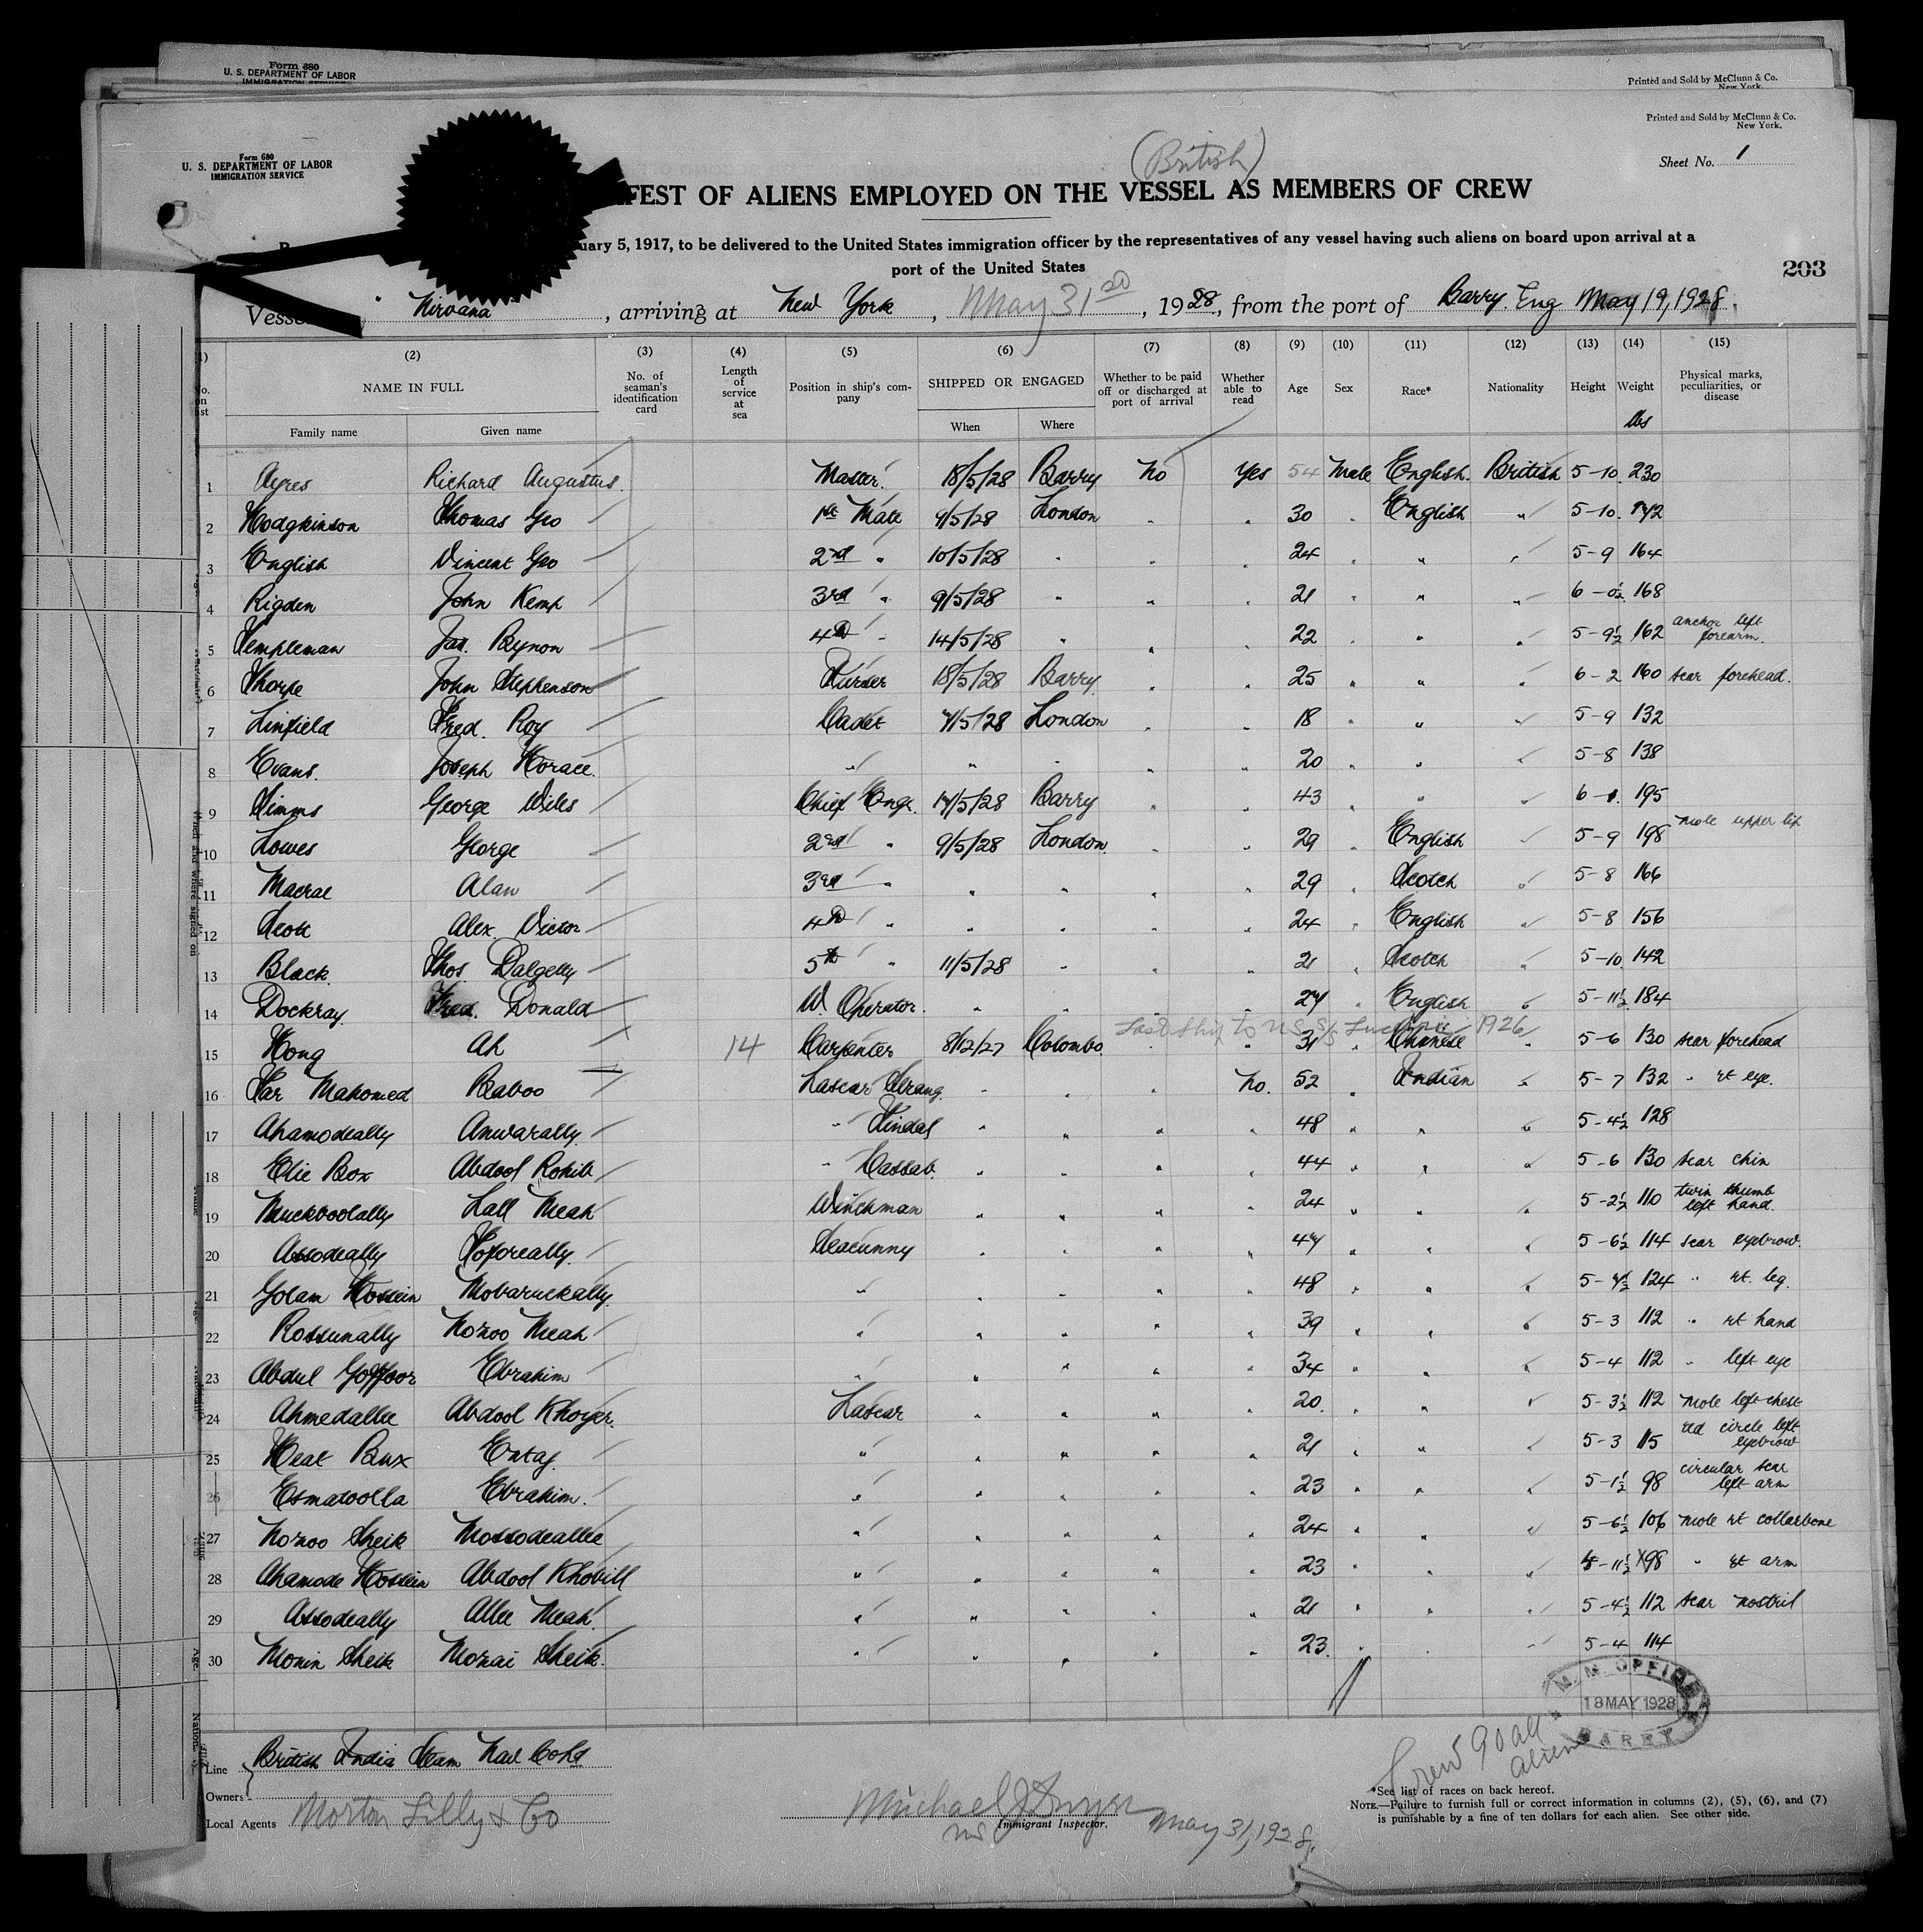 Form 680
U. S. DEPARTMENT OF LABOR
Printed and Sold by McClunn & Co.
New York.
Form 680
U. S. DEPARTMENT OF LABOR
IMMIGRATION SERVICE
Printed and Sold by McClunn & Co.
New York.
Sheet No. 1
(British)
FEST OF ALIENS EMPLOYED ON THE VESSEL AS MEMBERS OF CREW
uary 5, 1917, to be delivered to the United States immigration officer by the representatives of any vessel having such aliens on board upon arrival at a
port of the United States
203
Vesse " Nirvana ", arriving at New York, May 31st, 1928, from the port of Barry. Eng May 19, 1928.
(1) (2) (3) (4) (5) (6) (7) (8) (9) (10) (11) (12) (13) (14) (15)
No. on list NAME IN FULL No. of seaman's identification card Length of service at sea Position in ship's company SHIPPED OR ENGAGED Whether to be paid off or discharged at port of arrival Whether able to read Age Sex Race* Nationality Height Weight Physical marks, peculiarities, or disease
Family name Given name When Where lbs
1 Ayres Richard Augustus. Master. 18/5/28 Barry No Yes 54 Male English. British 5-10. 230
2 Hodgkinson Thomas Geo 1st Mate 9/5/28 London " " 30 " English " 5-10. 172
3 English Vincent Geo 2nd " 10/5/28 " " " 24 " " " 5-9 164
4 Rigden John Kemp 3rd " 9/5/28 " " " 21 " " " 6-0½ 168
5 Templeman Jas. Beynon 4th " 14/5/28 " " " 22 " " " 5-9½ 162 anchor left forearm.
6 Thorpe John Stephenson Purser 18/5/28 Barry " " 25 " " " 6-2 160 scar forehead.
7 Linfield Fred. Roy Cadet 7/5/28 London " " 18 " " " 5-9 132
8 Evans. Joseph Horace. " " " " " 20 " " " 5-8 138
9 Simms George Wiles Chief Engr. 17/5/28 Barry " " 43 " " " 6-1. 195
10 Lowes George 2nd " 9/5/28 London. " " 29 " English " 5-9 198 mole upper lip
11 Macrae Alan 3rd " " " " " 29 " Scotch " 5-8 166
12 Scott Alex. Victor 4th " " " " " 24 " English " 5-8 156
13 Black. Thos Dalgetty 5th " 11/5/28 " " " 21 " Scotch " 5-10. 142
14 Dockray. Fred. Donald W. Operator. " " " " 27 " English " 5-11½ 184
Last Ship to U.S. S/S 1926
15 Hong Ah 14 Carpenter 8/12/27 Colombo. " " 31 " Chinese " 5-6 130 scar forehead
16 Far Mahomed Baboo Lascar Serang. " " " No. 52 " Indian " 5-7 132 " rt eye.
17 Ahamodeally Anwarally. " Tindal " " " " 48 " " " 5-4½ 128
18 Elie Box Abdool Rohib " Cassab. " " " " 44 " " " 5-6 130 scar chin
19 Muckboolally Lall Meah Winchman " " " " 24 " " " 5-2½ 110 twin thumb left hand.
20 Assodeally Toforeally. Seacunny " " " " 47 " " " 5-6½ 114 scar eyebrow.
21 Golam Hossein Mobaruckally. " " " " " 48 " " " 5-4½ 124 " rt. leg.
22 Rossunally Nozoo Meah " " " " " 39 " " " 5-3 112 " rt hand
23 Abdul Goffoor Ebrahim " " " " " 34 " " " 5-4 112 " left eye
24 Ahmedallee Abdool Khoyer. Lascar " " " " 20. " " " 5-3½ 112 mole left chest
25 Neat Bux Entaj. " " " " " 21 " " " 5-3 115 red circle left eyebrow
26 Esmatoolla Ebrahim. " " " " " 23 " " " 5-1½ 98 circular scar left arm
27 Nozoo Sheik Mossodeallee " " " " " 24 " " " 5-6½ 106 mole rt collarbone
28 Ahamode Hossein Abdool Khobill " " " " " 23 " " " 4-11½ 98 " rt arm
29 Assodeally Allee Meah. " " " " " 21 " " " 5-4½ 112 scar nostril
30 Monin Sheik Monai Sheik. " " " " " 23. " " " 5-4 114
M. M. OFFICE
18 MAY 1928
BARRY
Crew 90 all aliens
Line British India Steam Nav Co Ltd
Owners
Local Agents Morton Lilly & Co
Michael J Dwyer
Immigrant Inspector. May 31, 1928.
*See list of races on back hereof.
NOTE.—Failure to furnish full or correct information in columns (2), (5), (6), and (7)
is punishable by a fine of ten dollars for each alien. See other side.